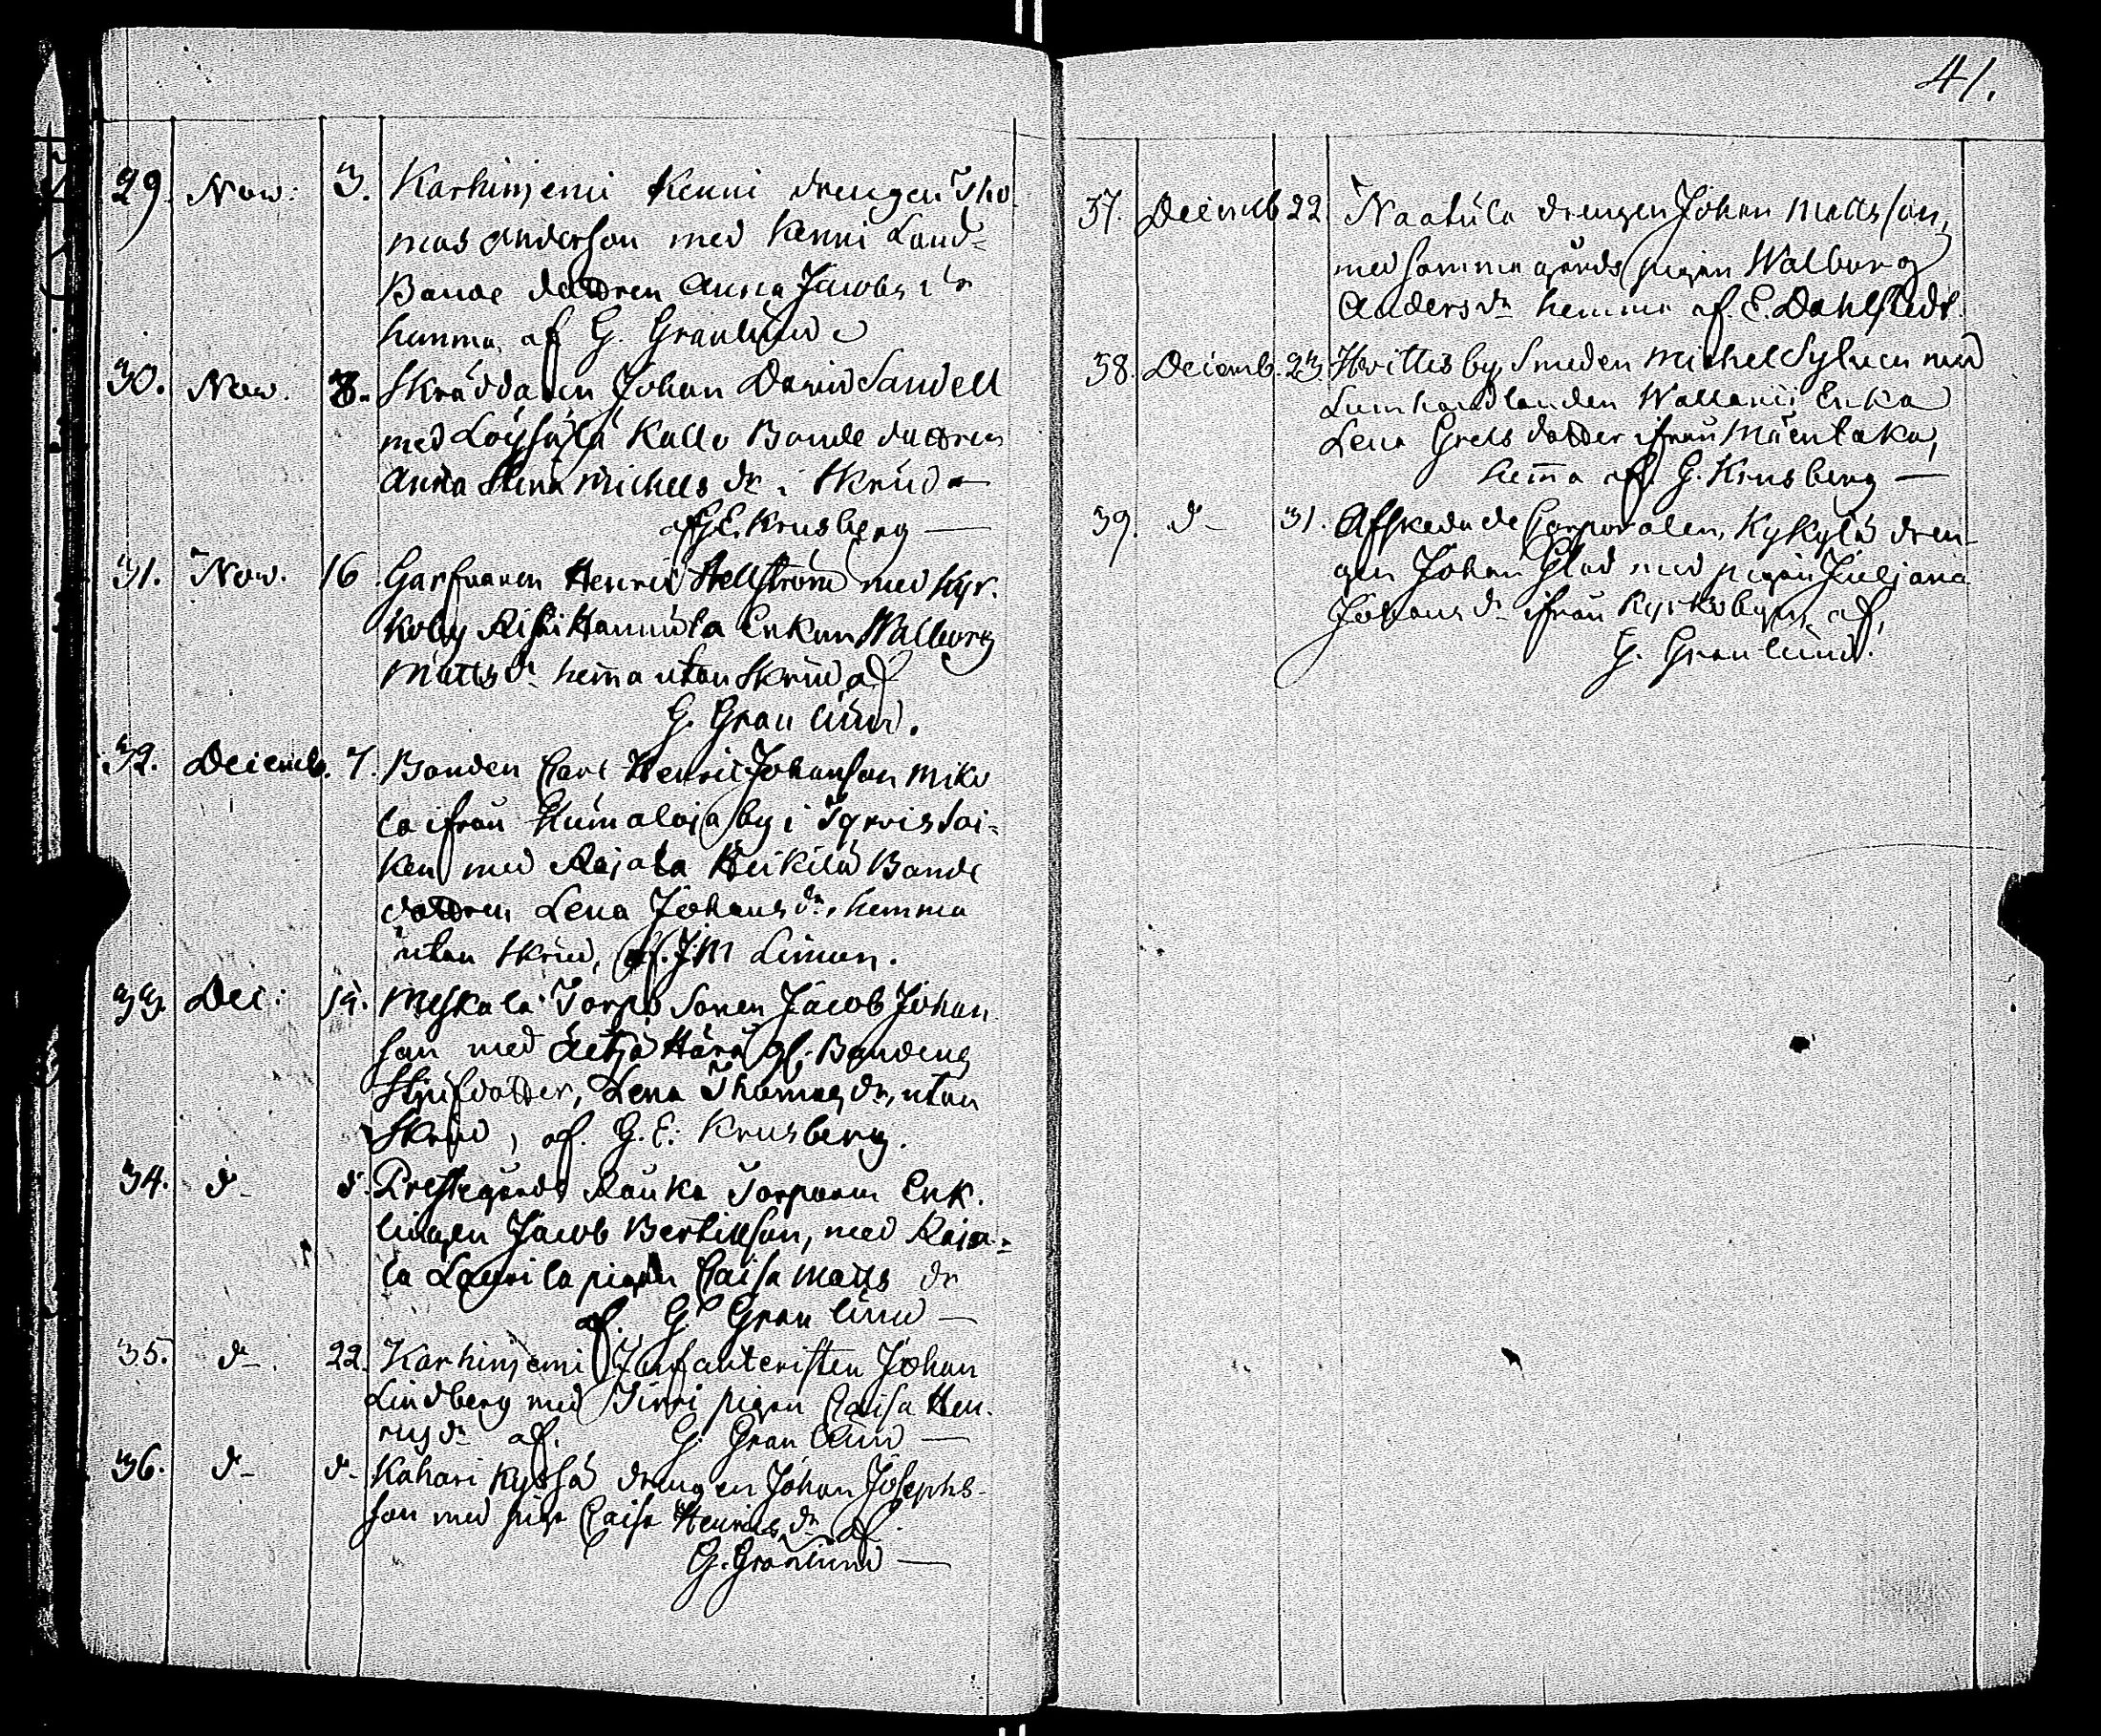 41.
29. Nov: 3. Karhiniemi Kenni drengen Tho-
mas Andersson med Kenni Land=
Bonde dottren Anna Jacobs dr
hemma af G. Granlund
30. Nov. 8. Skräddaren Johan David Sandell
med Kallo Bonde dottren
Anna Stina Michels dr i Skrud
af G.E. Krusberg —
31. Nov. 16. Garfvaren Henric Hellström med Kyr-
koby Hannula Enkan Walborg
Matts dr hem̄a utan Skrud af
G. Granlund.
32. Decemb. 7. Bonden Carl Henric Johansson Mik
la ifrån Humaloja by i Tyrvis Soc=
ken med Rajala Heikilä Bonde
dottren Lena Johans dr, hemma
utan Skrud, af. J.M Limon.
33. Dec: 14. Meskala Torp Sonen Jacob Johan
son med Äetsä Härä gl. Bondens
Stjufdotter, Lena Thomas dr, utan
Skrud, af. G.E: Krusberg.
34. d- d. Prestegårds Rauka Torparen Enk-
lingen Jacob Bertillson, med Raja=
la Laurila pigan Caisa Matts dr
af. G. Granlund —
35. d-. 22. Karhiniemi Infanteristen Johan
Lindberg med Sirri pigan Caisa Hen-
rics dr af. G. Granlund —
36. d- d- Kahari drengen Johan Josephs-
son med piga Caisa Henrics dr af
G. Granlund —
37. Decemb 22 Naatula drengen Johan Mattsson,
med samma gårds pigan Walborg
Anders dr hemma af. E. Dahlstedt.
38. Decemb. 23 Hvittis by, Smeden Michel Sylven med
Lumhandlanden Enka
Lena Grels dotter ifrån Mäentaka,
hem̄a af. G. Krusberg —
39. d- 31. Afskedade Corporalen, Kykylä dren-
gen Johan Glad med pigan Juljana
Johans dr ifrån Kyrkobyn, af,
G. Granlund.